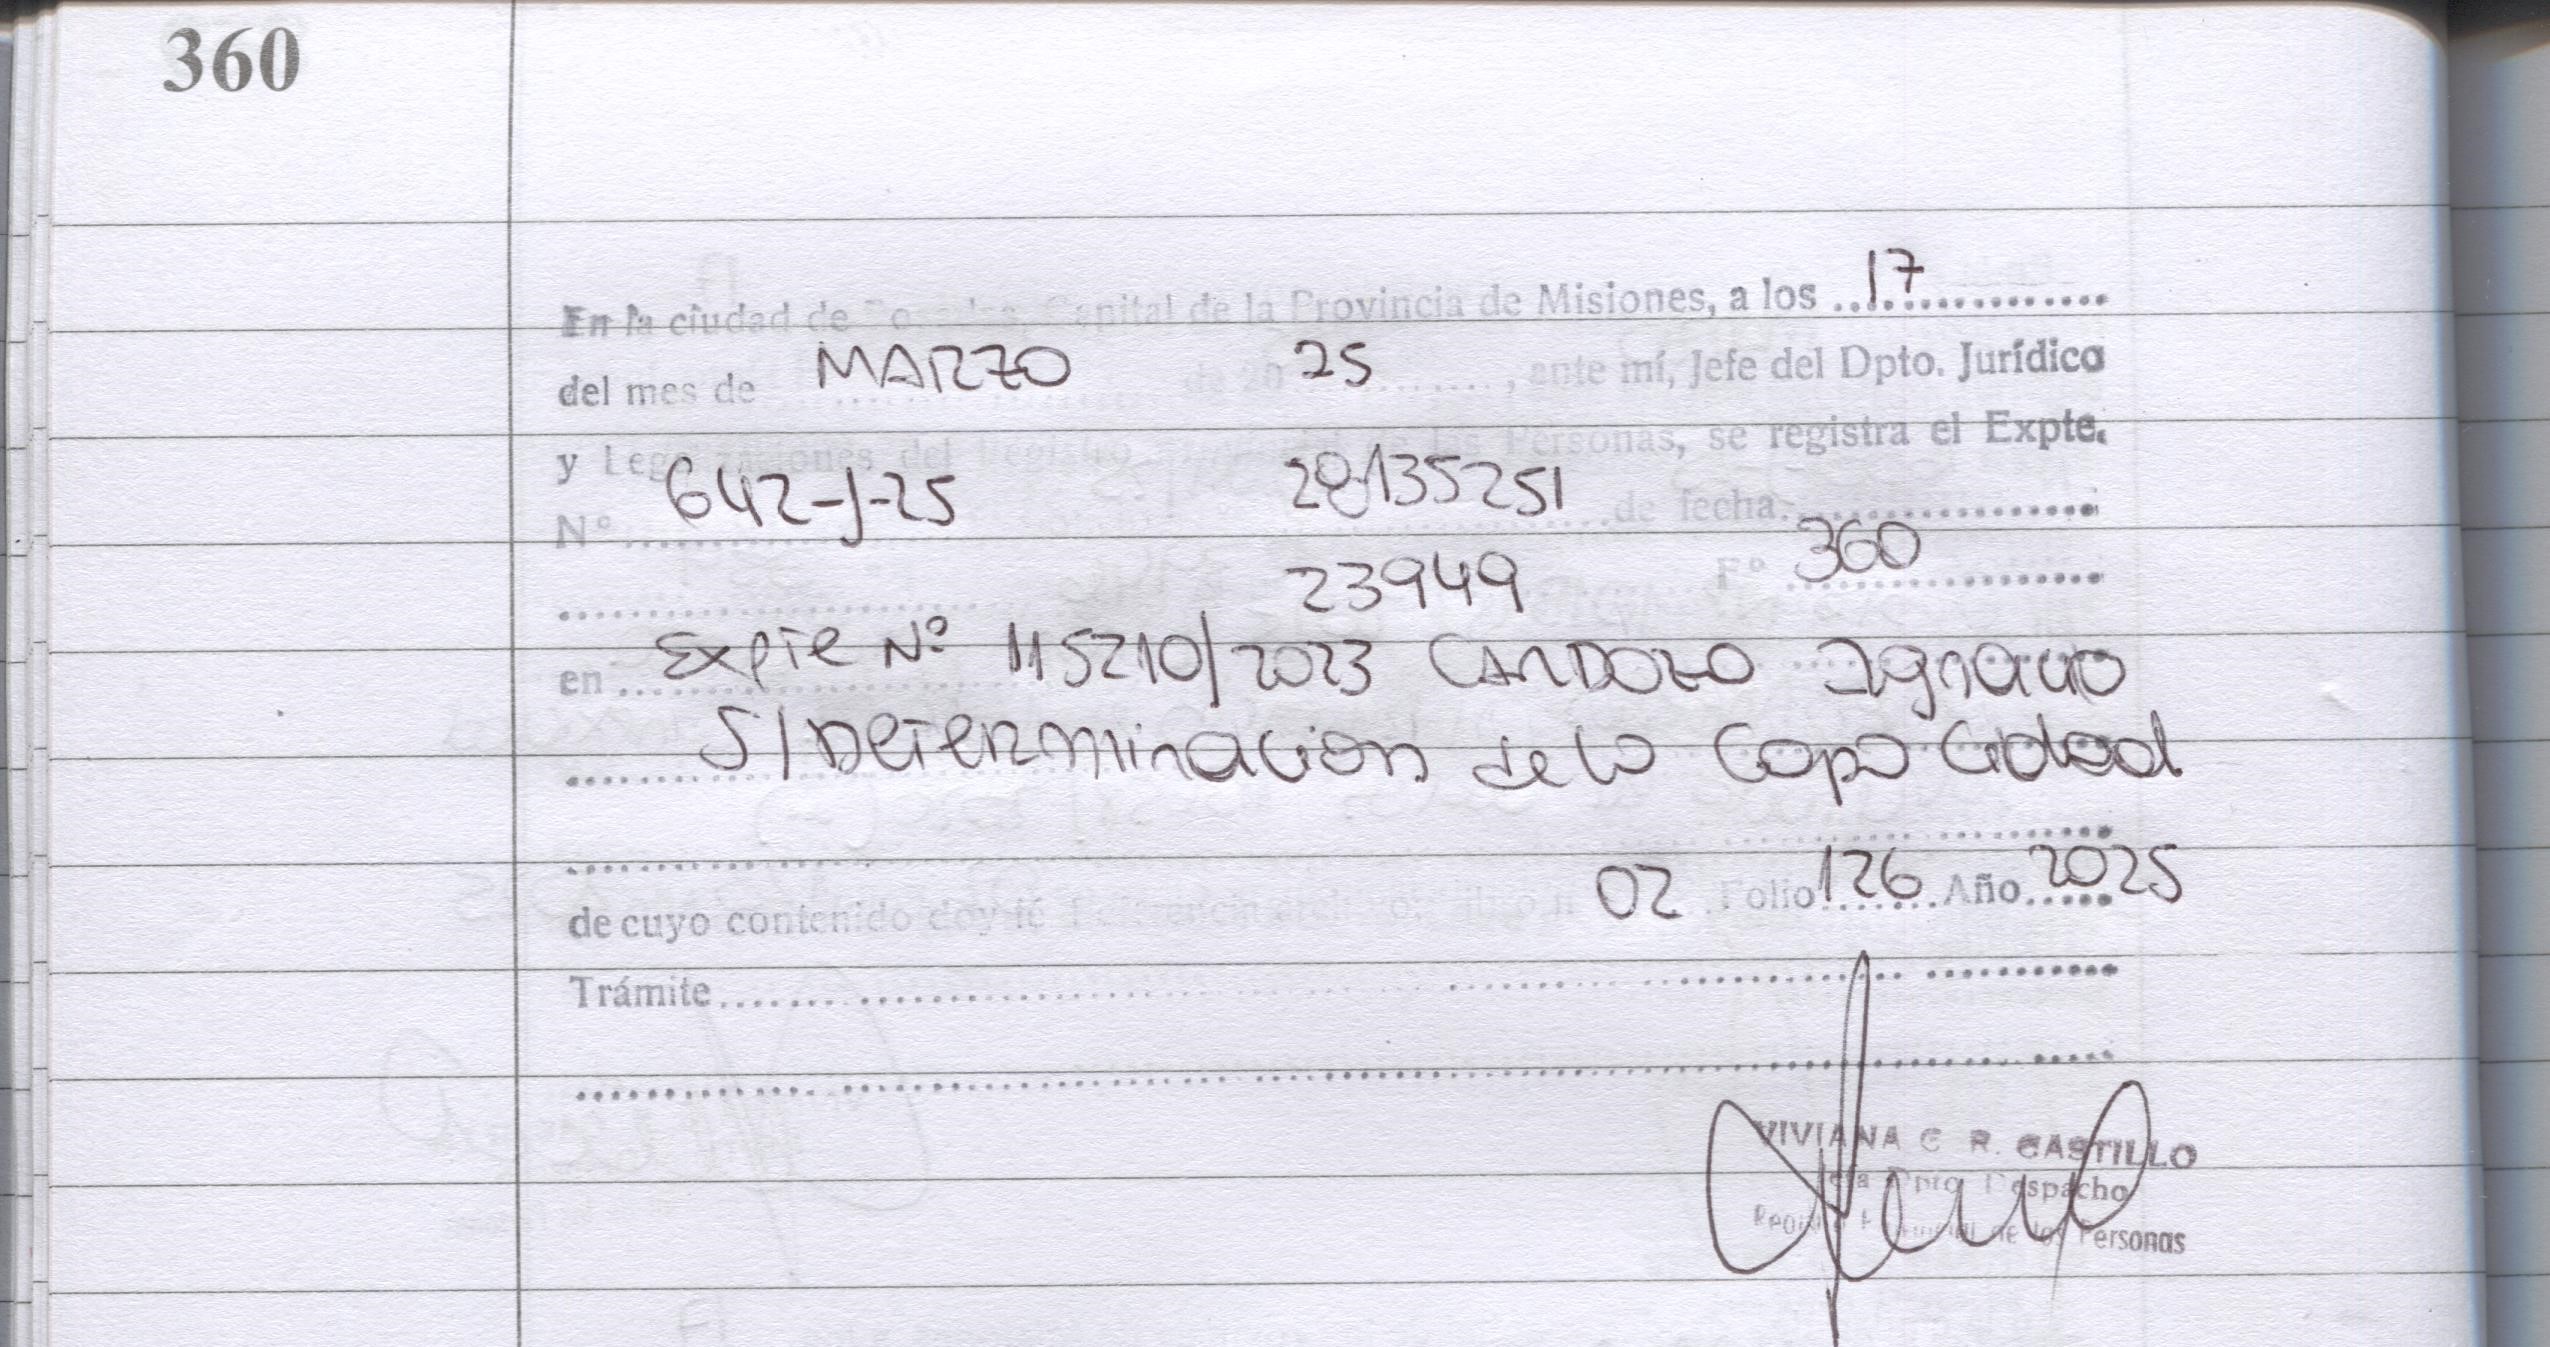 360
En la ciudad de Posadas, Capital de la Provincia de Misiones, a los 17
del mes de MARZO de 20 25, ante mí, Jefe del Dpto. Jurídico
y Legalizaciones del Registro Provincial de las Personas, se registra el Expte.
Nº 642-J-25 28135251 de fecha
23949 Fº 360
en Expte Nº 115210/2023 CARDOZO Ignacio
S/ Determinacion de la Capacidad
de cuyo contenido doy fé 02 Folio 126 Año 2025
Trámite
VIVIANA C R. CASTILLO
Jefa Dpto Despacho
Registro Provincial de las Personas